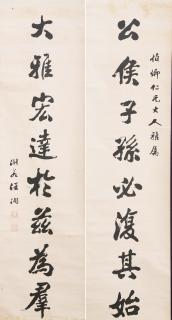 伯卿仁兄大人雅屬
公侯子孫必復其始
大雅宏達於茲為羣